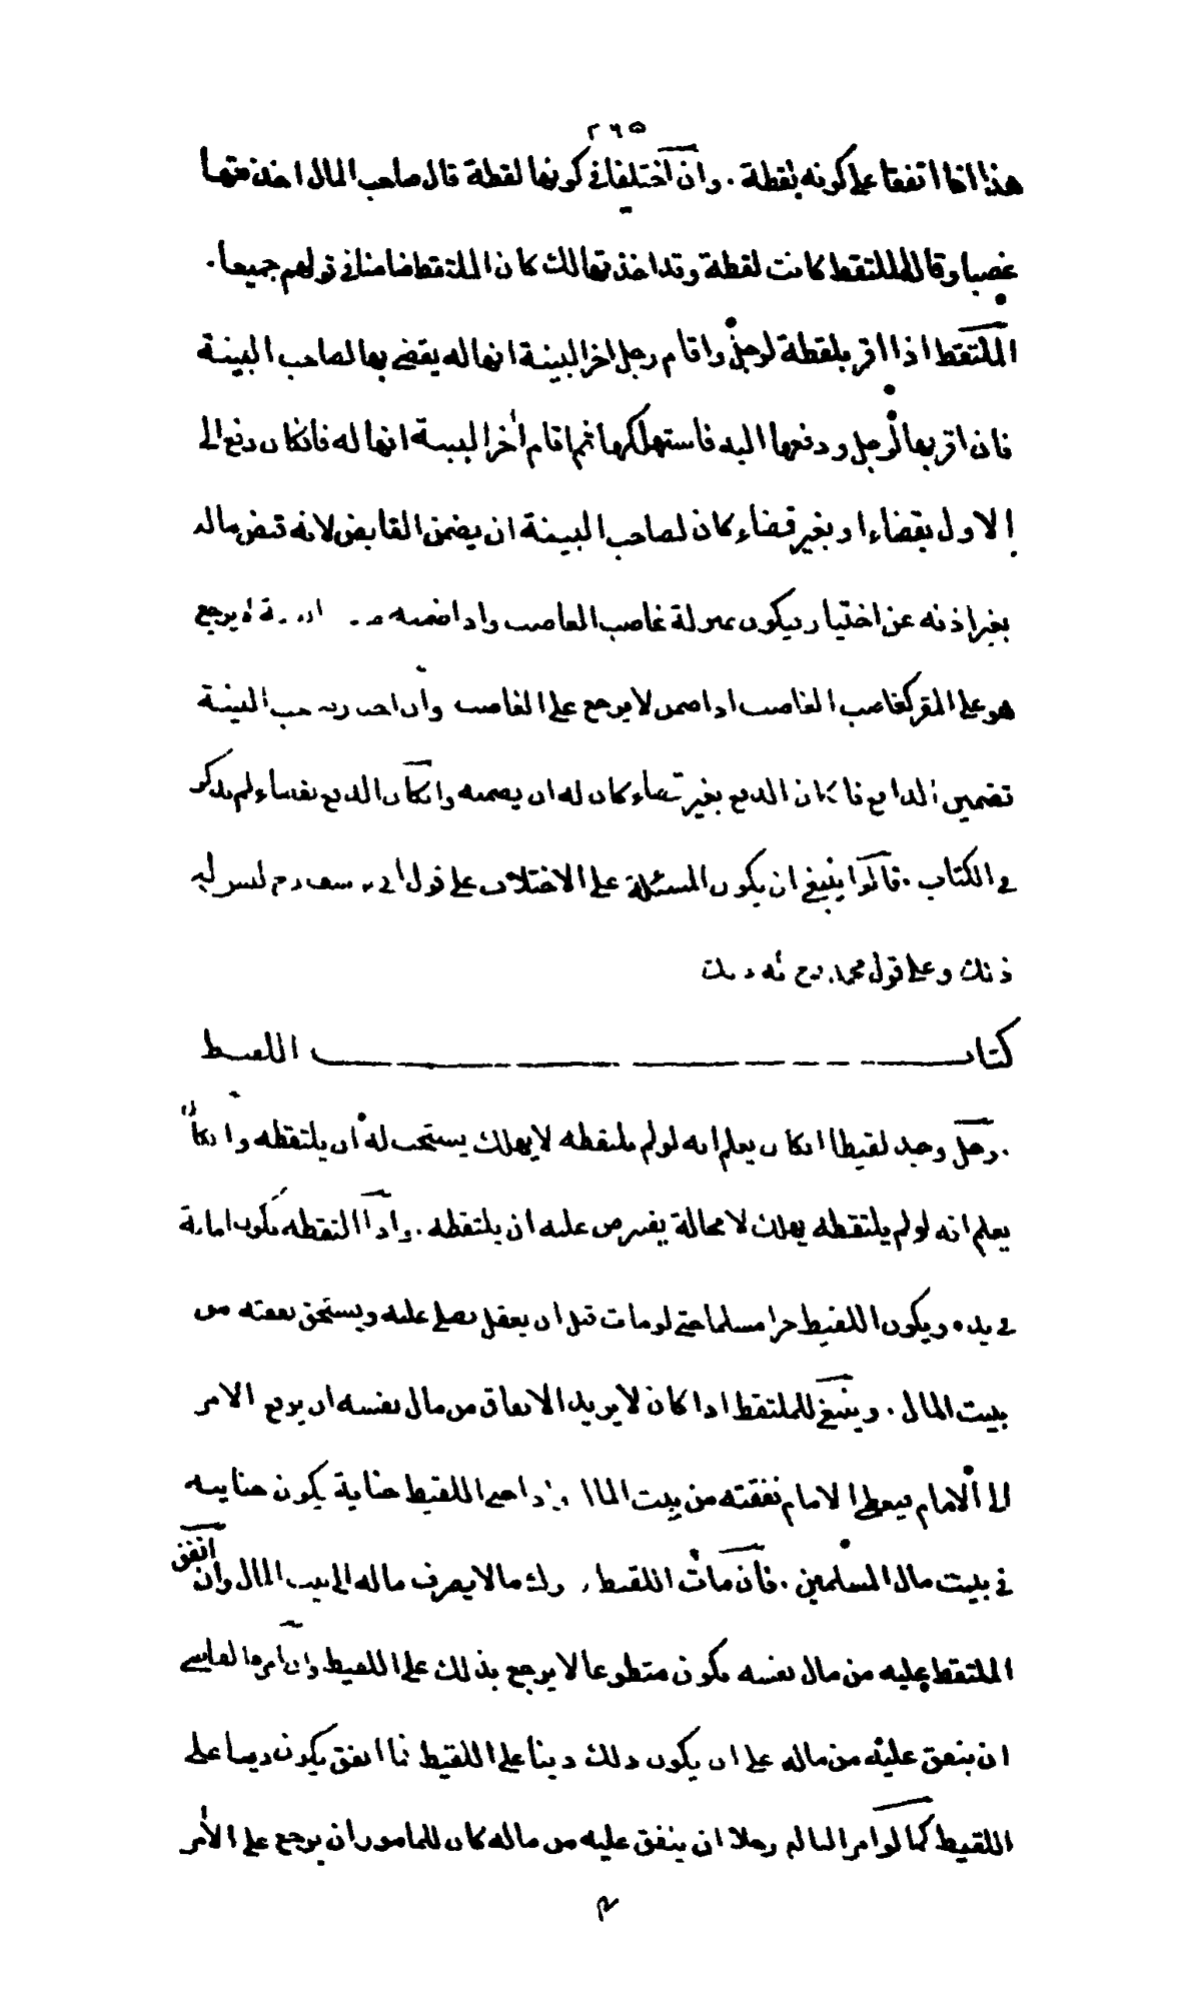 ٢٦٥
هذا اذا اتفقا على كونه لقطة . وان اختلفا في كونها لقطة قال صاحب المال اخذتها
غصبا وقال الملتقط كانت لقطة وقد اخذتها لك كان الملتقط ضامنا في قولهم جميعا .
الملتقط اذا اقر بلقطة لرجل واقام رجل اخر البينة انها له يقضى بها لصاحب البينة
فان اقر بها لرجل ودفعها اليه فاستهلكها ثم اقام اخر البينة انها له فانكان دفع الى
الاول بقضاء او بغير قضاء كان لصاحب البينة ان يضمن القابض لانه قبض ماله
بغير اذنه عن اختيار فيكون بمنزلة غاصب الغاصب واذا ضمنه يرجع
هو على المقر كغاصب الغاصب اذا ضمن لا يرجع على الغاصب وان البينة
تضمين الدافع فا كان الدفع بغير قضاء كان له ان يضمنه وانكان الدفع بقضاء لم يذكر
في الكتاب . قالوا ينبغي ان يكون المسئلة على الاختلاف على قول ابي ليس له
ذلك وعلى قول محمد رح له ذلك
كتاب اللقيط
. رجل وجد لقيطا انكان يعلم انه لو لم يلتقطه لا يهلك يستحب له ان يلتقطه وانكان
يعلم انه لو لم يلتقطه يهلك لا محالة يفترض عليه ان يلتقطه . واذا التقطه يكون امانة
في يده ويكون اللقيط حرا مسلما حتى لو مات قبل ان يعقل يصلى عليه ويستحق نفقته من
بيت المال . وينبغي للملتقط اذا كان لا يريد الانفاق من مال نفسه ان يرفع الامر
الى الامام فيعطي الامام نفقته من بيت المال واذا جنى اللقيط جناية يكون جنايته
في بيت مال المسلمين . فان مات اللقيط وترك مالا يصرف ماله الى بيت المال وان انفق
الملتقط عليه من مال نفسه يكون متطوعا لا يرجع بذلك على اللقيط وان امره القاضي
ان ينفق عليه من ماله على ان يكون ذلك دينا على اللقيط فما انفق يكون دينا على
اللقيط كما لو امر رجلا ان ينفق عليه من ماله كان للمامور ان يرجع على الآمر